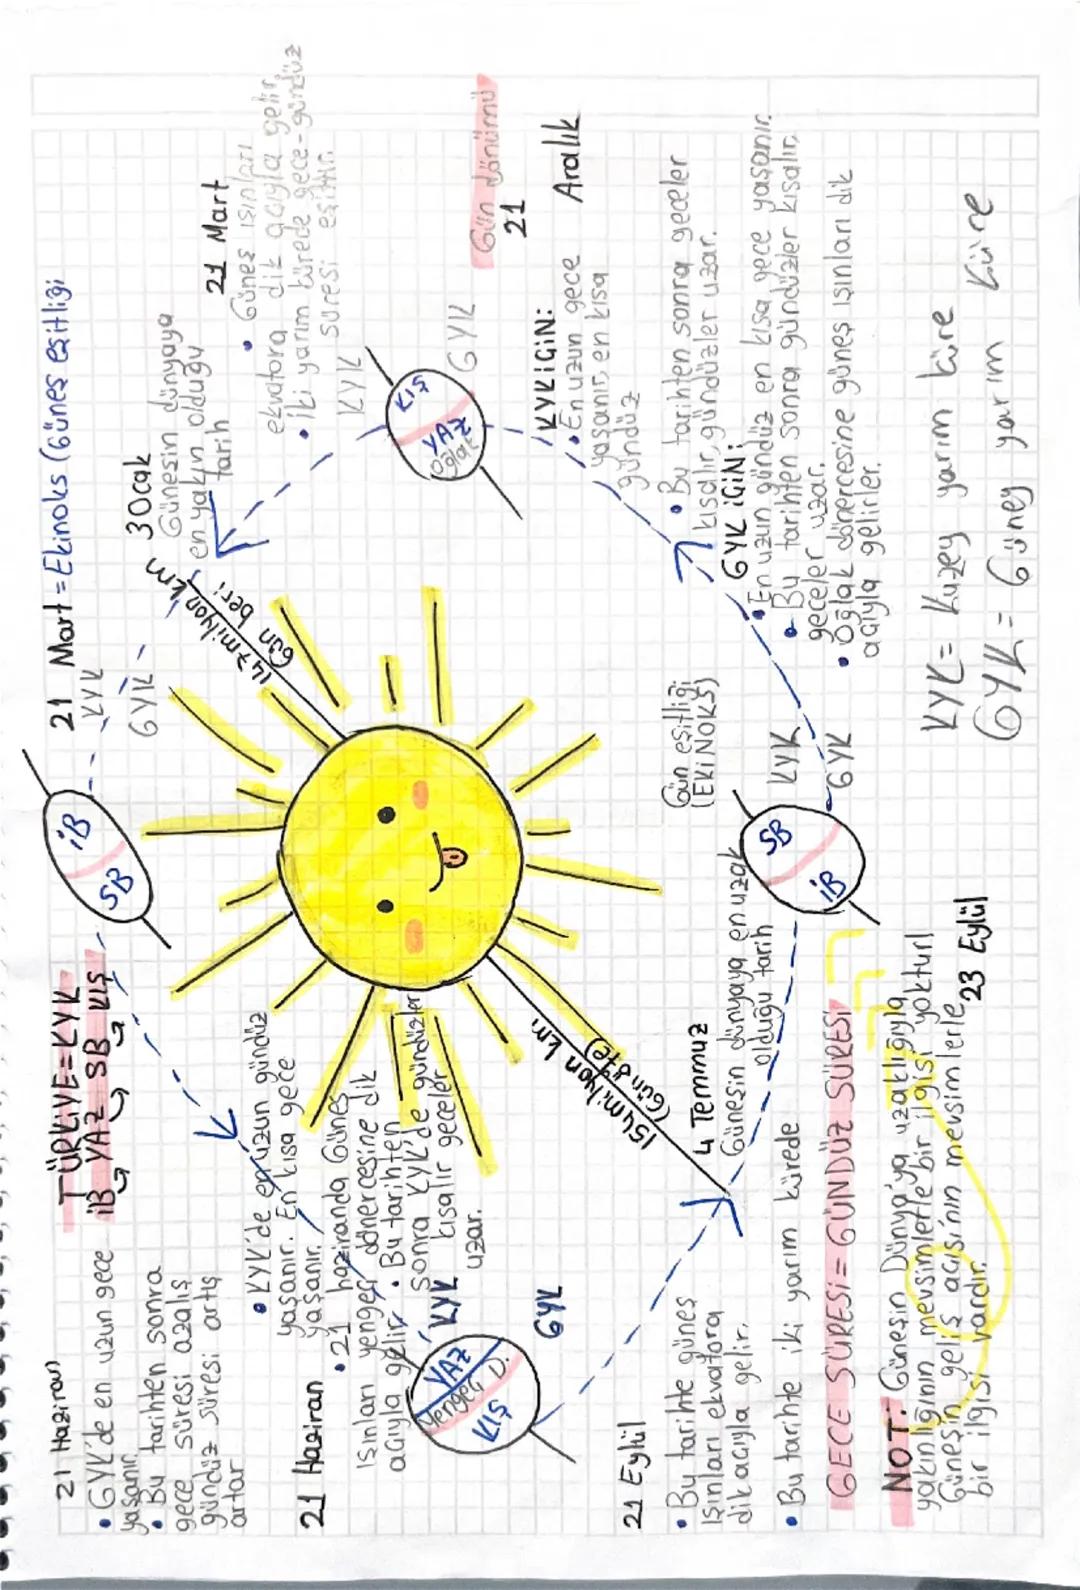 21 Haziran
• GYK'de en uzun gece
yaşanır.
• Bu tarihten sonra
gece süresi azalış
gündüz süresi artış
artar
TÜRKİYE=KYK
İB YAZ SB KIŞ
21 Mart = Ekinoks (Güneş eşitliği)
KYK
GYK
İB
SB
3 Ocak
Güneşin dünyaya
en yakın olduğu
tarih
147 milyon km
Gün beri
21 Mart
• Güneş ışınları
ekvatora dik açıyla gelir.
• İki yarım kürede gece-gündüz
süresi eşittir.
KYK
GYK
KIŞ
YAZ
oğlak
Gün dönümü
21
Aralık
KYK İÇİN:
• En uzun gece
yaşanır, en kısa
gündüz
• Bu tarihten sonra geceler
kısalır, gündüzler uzar.
GYK İÇİN:
• En uzun gündüz en kısa gece yaşanır.
• Bu tarihten sonra gündüzler kısalır,
geceler uzar.
• Oğlak dönercesine güneş ışınları dik
açıyla gelirler.
• KYK'de en uzun gündüz
yaşanır. En kısa gece
yaşanır.
21 Haziran
• 21 haziranda Güneş
ışınları yengeç dönercesine dik
açıyla gelir.
• Bu tarihten
sonra KYK'de gündüzler
kısalır geceler
uzar.
KYK
GYK
YAZ
Yengeç D.
KIŞ
154 milyon km
(Gün öte)
4 Temmuz
Güneşin dünyaya en uzak
olduğu tarih
Gün eşitliği
(EKİNOKS)
KYK
GYK
SB
İB
23 Eylül
21 Eylül
• Bu tarihte güneş
ışınları ekvatora
dik açıyla gelir.
• Bu tarihte iki yarım kürede
GECE SÜRESİ = GÜNDÜZ SÜRESİ
NOT: Güneşin Dünya'ya uzaklığıyla
yakınlığının mevsimlerle bir ilgisi yoktur!
Güneşin geliş açısının mevsimlerle
bir ilgisi vardır.
KYK = Kuzey yarım küre
GYK = Güney yarım Küre